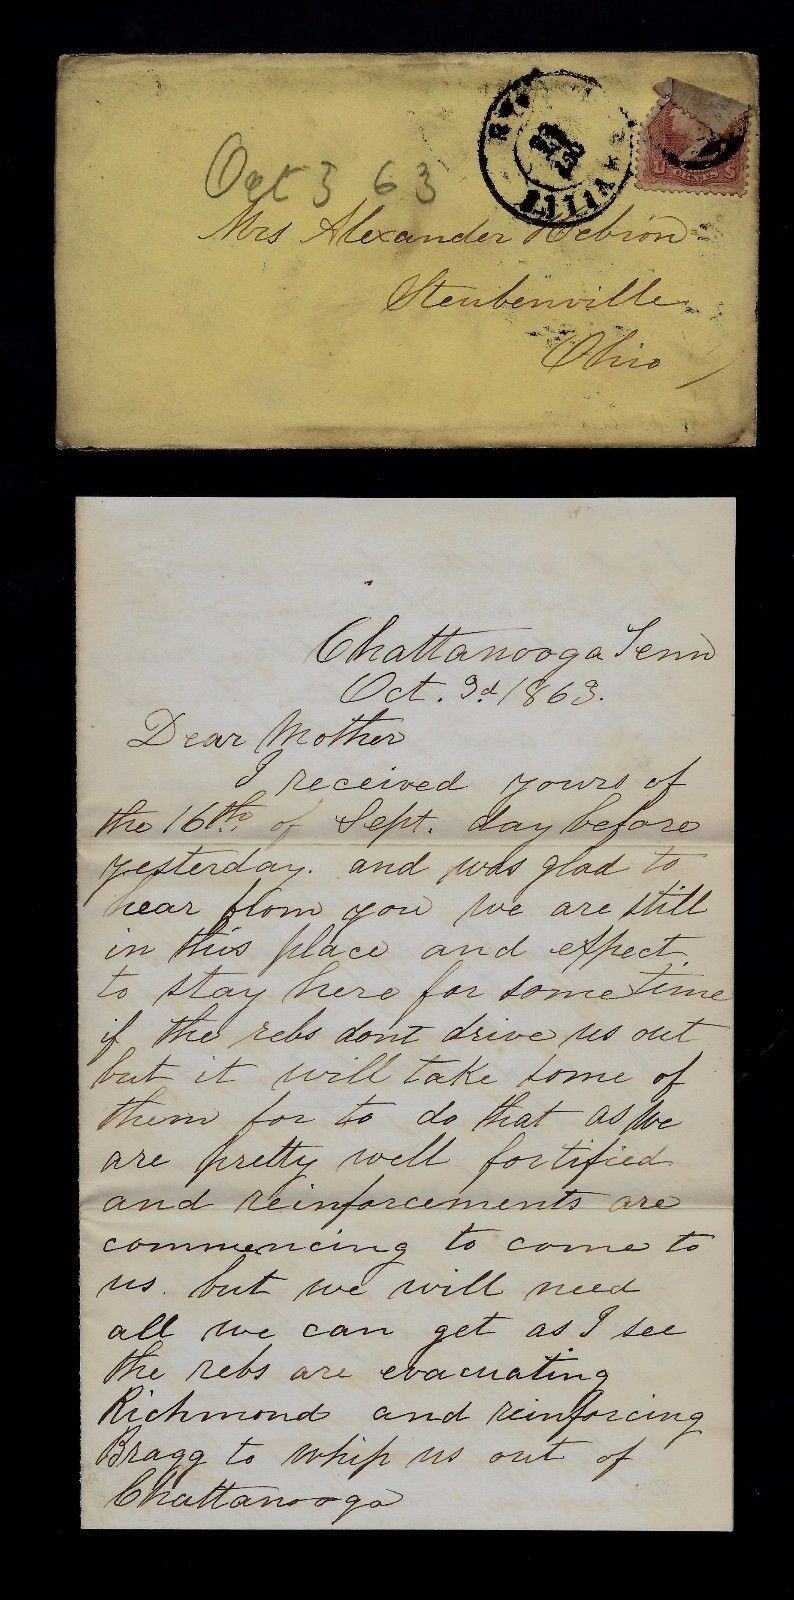 Oct 3 63
Mrs Alexander Hebron
Steubenville
Ohio
Chattanooga Tenn
Oct. 3d 1863.
Dear Mother
I received yours of
the 16th of Sept. day before
yesterday. and was glad to
hear from you we are still
in this place and expect
to stay here for some time
if the rebs dont drive us out
but it will take some of
them for to do that as we
are pretty well fortified
and reinforcements are
commencing to come to
us. but we will need
all we can get as I see
the rebs are evacuating
Richmond and reinforcing
Bragg to whip us out of
Chattanooga